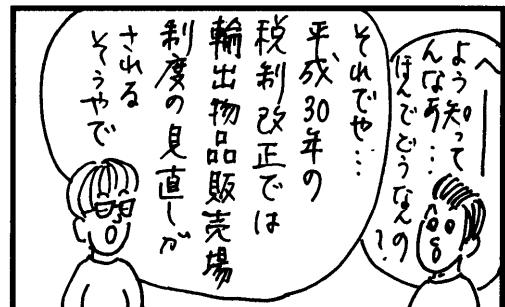 へーーー
よう知って
んなあ…
ほんでどうなんの?
それでや…
平成30年の
税制改正では
輸出物品販売場
制度の見直しが
される
そうやで